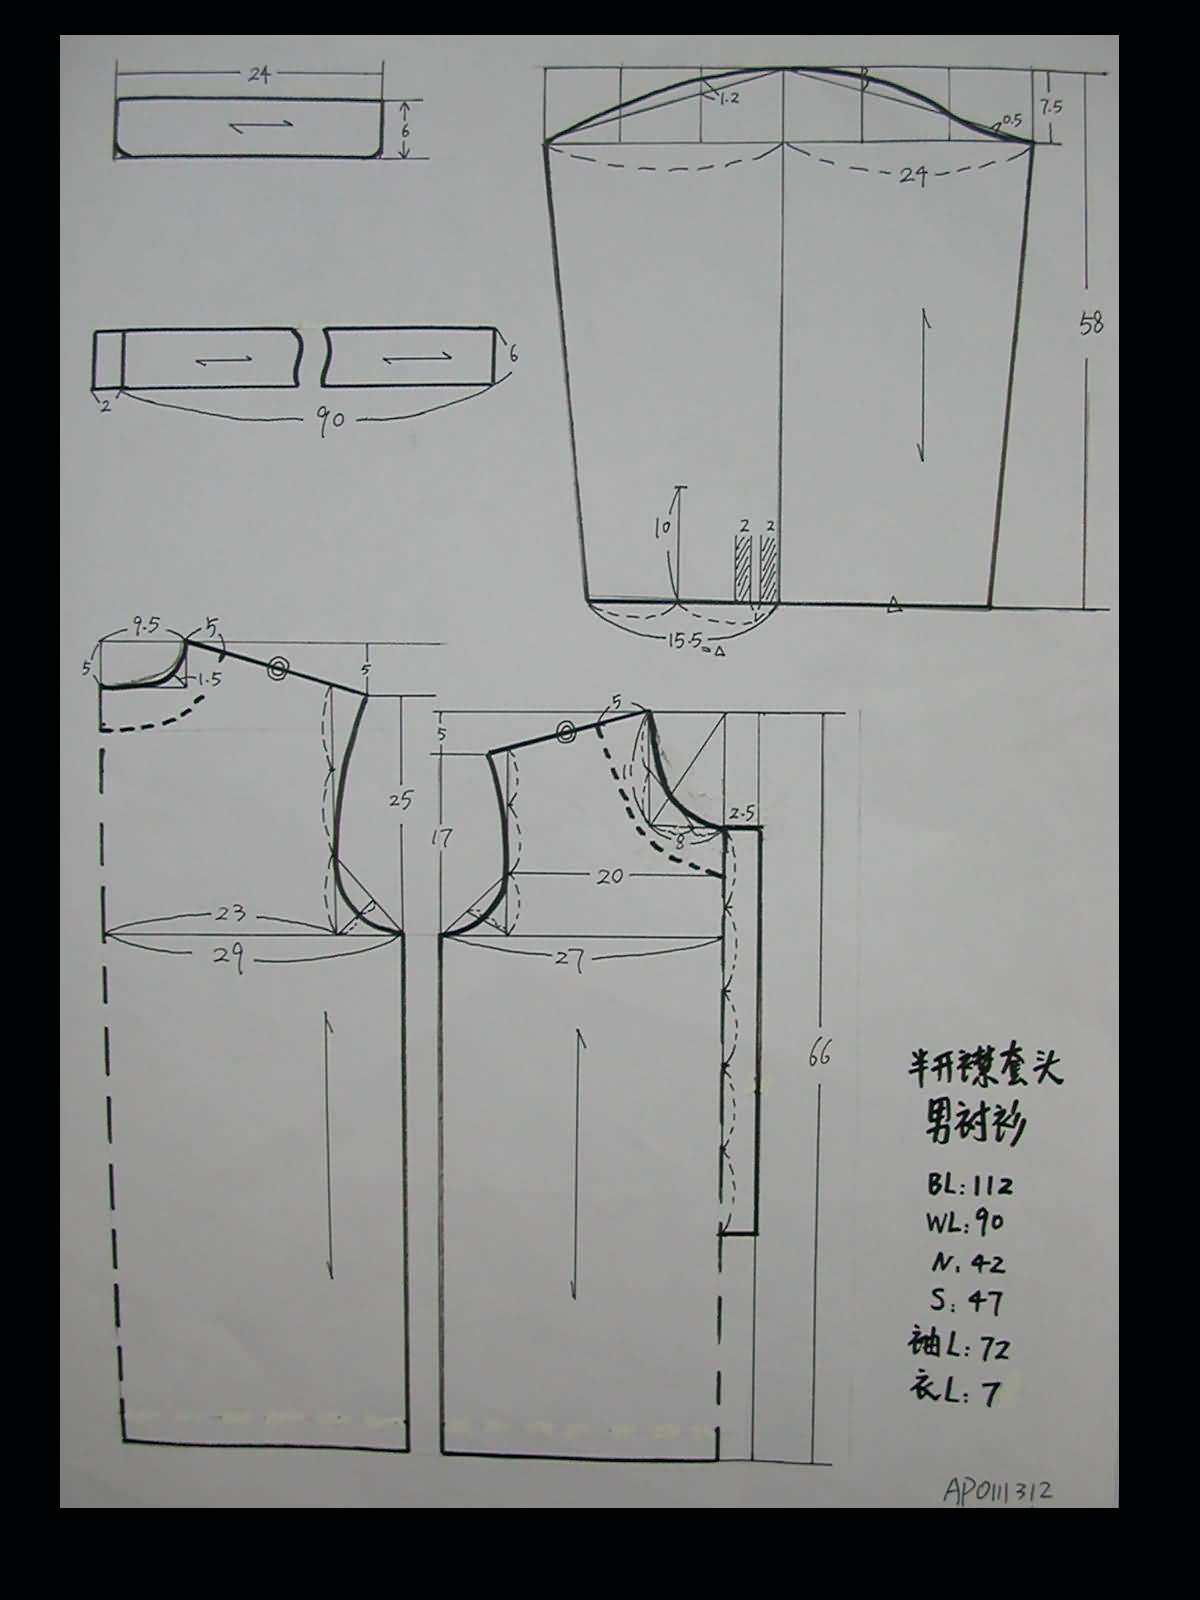 24
6
1.2
0.5
7.5
24
58
10
2
2
△
15.5=△
6
2
90
9.5
5
5
1.5
5
25
23
29
5
5
11
17
8
2.5
20
27
66
半开襟套头
男衬衫
BL:112
WL:90
N:42
S:47
袖L:72
衣L:7
AP0111312